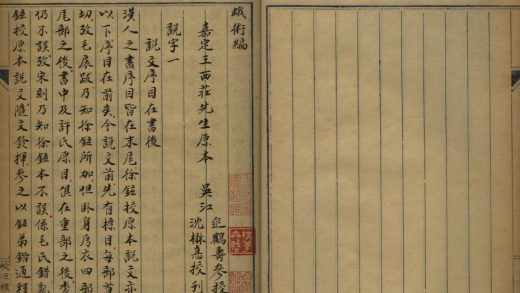 蛾術編
嘉定王西莊先生原本
吳江
迮鶴壽參校
沈楙惪校刊
說字一
說文序目在書後
漢人之書序目皆在末尾徐鉉校原本說文亦
以下序目在前矣今說文前先有標目每部首
切攷毛展跋乃知徐鉉所加但卧身㐆衣四部
尾部之後書中及許氏原目俱在重部之後李
仍不誤攷宋刻乃知徐鉉本不誤係毛氏錯亂
鉉校原本說文隨文發揮參之以鉉弟鍇通釋